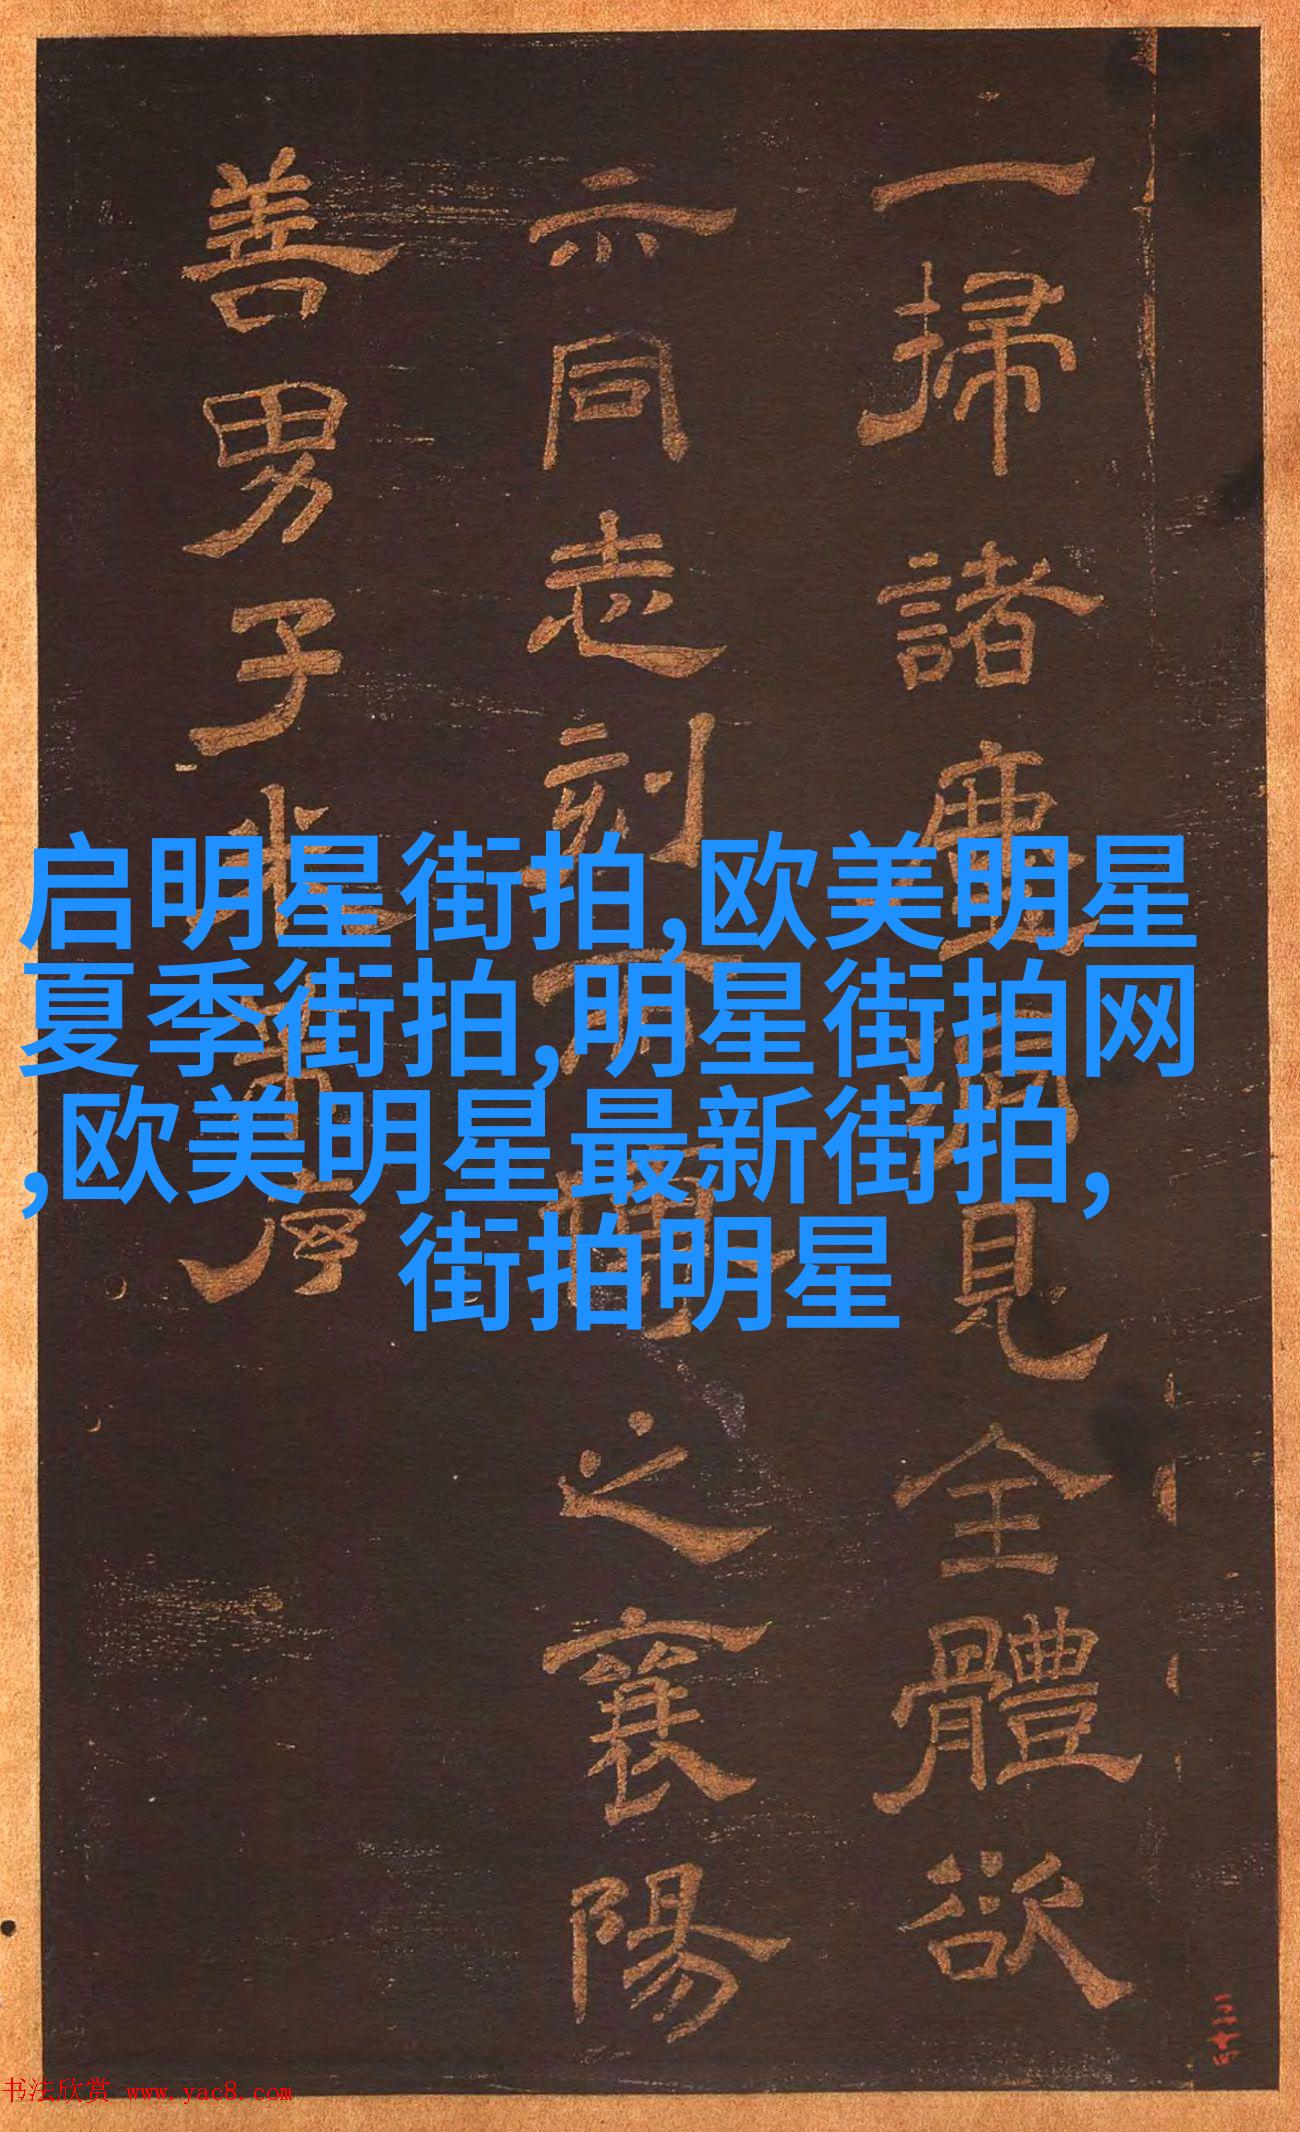 一掃諸見全體欲
示同志刻之襄陽
善男子
启明星街拍,欧美明星
夏季街拍,明星街拍网
,欧美明星最新街拍,
街拍明星
书法欣赏 www.yac8.com